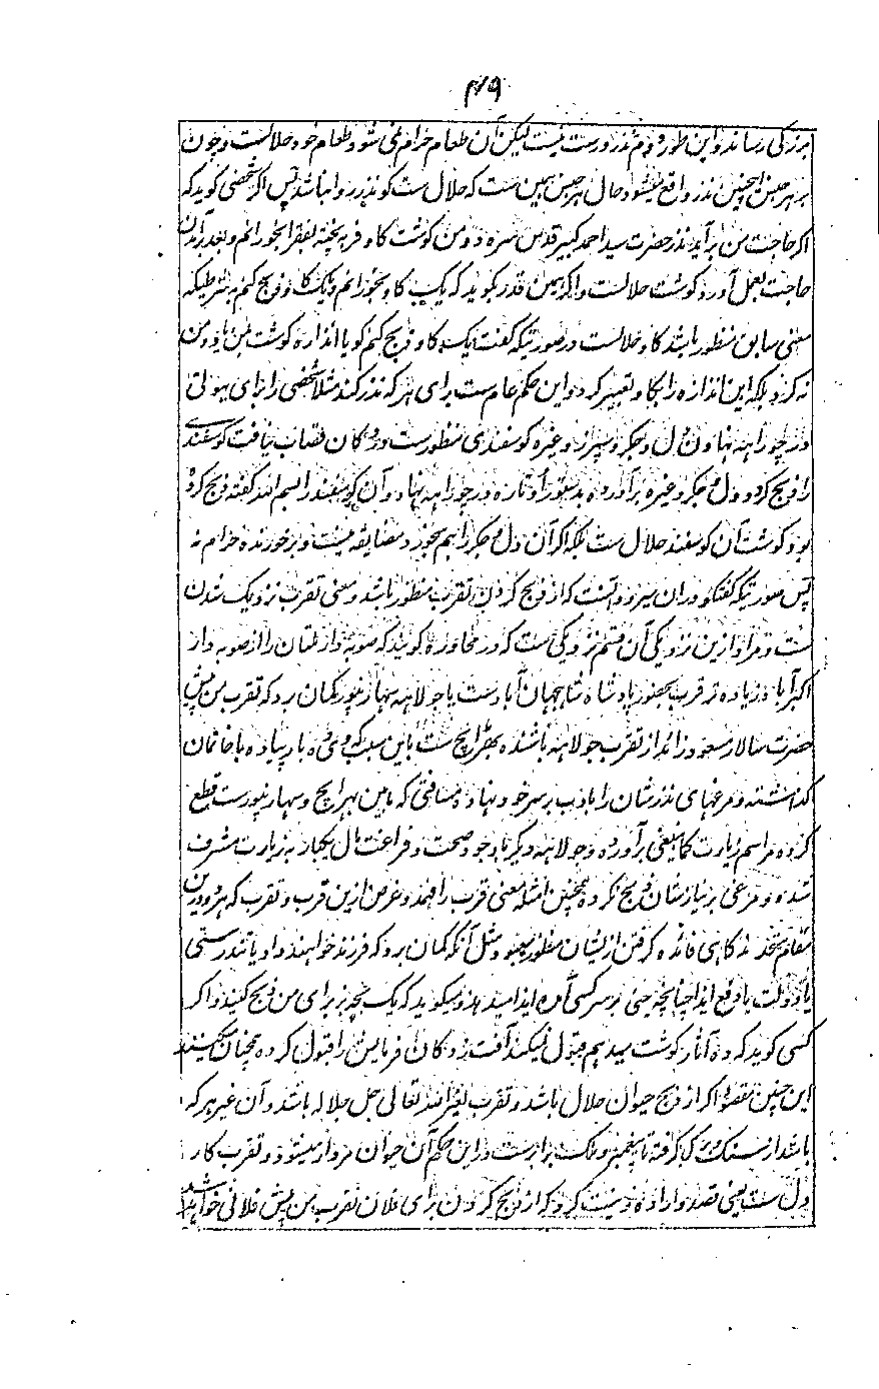 ۴۷۹
بزرگی رساند و این طور دوم نذر درست نیست لیکن آن طعام حرام نمی شود و طعام خود حلالست و چون
بهر جنس اینچنین نذر واقع میشود حال هر جنس همین ست که حلال ست گو نذر روا نباشد پس اگر شخصی گوید که
اگر حاجت من برآید نذر حضرت سید احمد کبیر قدس سره دو من گوشت گاو فربه پخته بفقرا بخورانم و بعد برآمدن
حاجت بعمل آورد گوشت حلالست و اگر همین قدر بگوید که یک گاو بخورانم و یک گاو ذبح کنم بشرطیکه
معنی سابق منظور باشد گاو حلالست در صورتیکه گفت یک گاو ذبح کنم گویا اندازه گوشت بمن یا دو من
نه کرد بلکه این اندازه را بگاو تعبیر کرد و این حکم عام ست برای هر که نذر کند مثلا شخصی را برای
در چوراهه نهادن دل و جگر و سپرز وغیره گوسفندی منظورست و دوکان قصاب نیافت گوسفندی
را ذبح کرد و دل و جگر وغیره برآورده بدستور در چوراهه نهاد و آن گوسفند را بسم الله گفته ذبح کرده
بود گوشت آن گوسفند حلال ست بلکه اگر آن دل و جگر را هم بخورد مضایقه نیست و بر خورنده حرام نه
پس صورتیکه گفتگو دران میرود آنست که از ذبح کردن تقرب منظور باشد و معنی تقرب نزدیک شدن
ست و مراد ازین نزدیکی آن قسم نزدیکی ست که در محاوره گویند که صوبه دار ملتان را از صوبه دار
اکبرآباد زیاده تر قرب بحضور پادشاه شاهجهان آباد ست یا جولاهه سهارنپور گمان برد که تقرب من پیش
حضرت سالار مسعود زائد از تقرب جولاهه باشنده بهڑائچ ست باین سبب که وی ده بار پیاده با خانمان
گذاشته و مرغهای نذر شان را بادب بر سر خود نهاده مسافتی که مابین بهڑائچ و سهارنپورست قطع
کرده مراسم زیارت کما ینبغی برآورده و جولاهه دیگر باوجود صحت و فراغت بال یکبار بزیارت مشرف
شده و مرغی بر نیاز شان ذبح نکرده همچنین امثله معنی قرب را فهمد و غرض ازین قرب و تقرب که هر دو درین
مقام متحد اند گاهی فائده گرفتن از ایشان منظور میبود مثل آنکه گمان برد که فرزند خواهند داد یا تندرستی
یا دولت یا دفع ایذا چنانچه جنی بر سر کسی آمده ایذا میدهد و میگوید که یک بچه بز برای من ذبح کنید و اگر
کسی گوید که ده آثار گوشت میدهیم قبول نمیکند آفت زدگان فرمایش را قبول کرده همچنان میکنند
این چنین تقرب اگر از ذبح حیوان حلال باشد و تقرب لغیر الله تعالی جل جلاله باشد و آن غیر هر که
باشد از سنگ و گرفته تا پیغمبر و ملک برابرست در این حکم آن حیوان مردار میشود و تقرب کار
دل ست یعنی قصد و اراده و نیت کرد که از ذبح کردن برای فلان تقرب من پیش فلانی خواهد شد